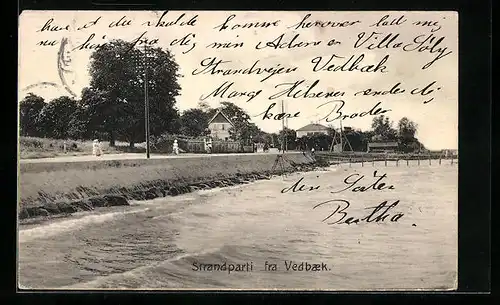 have at du skulde komme herover lad mig
nu hør fra dig, min Adresse er Villa Sølyst
Strandvejen Vedbæk
Mange Hilsener sendes dig
kære Broder
din Søster
Bertha.
Strandparti fra Vedbæk.